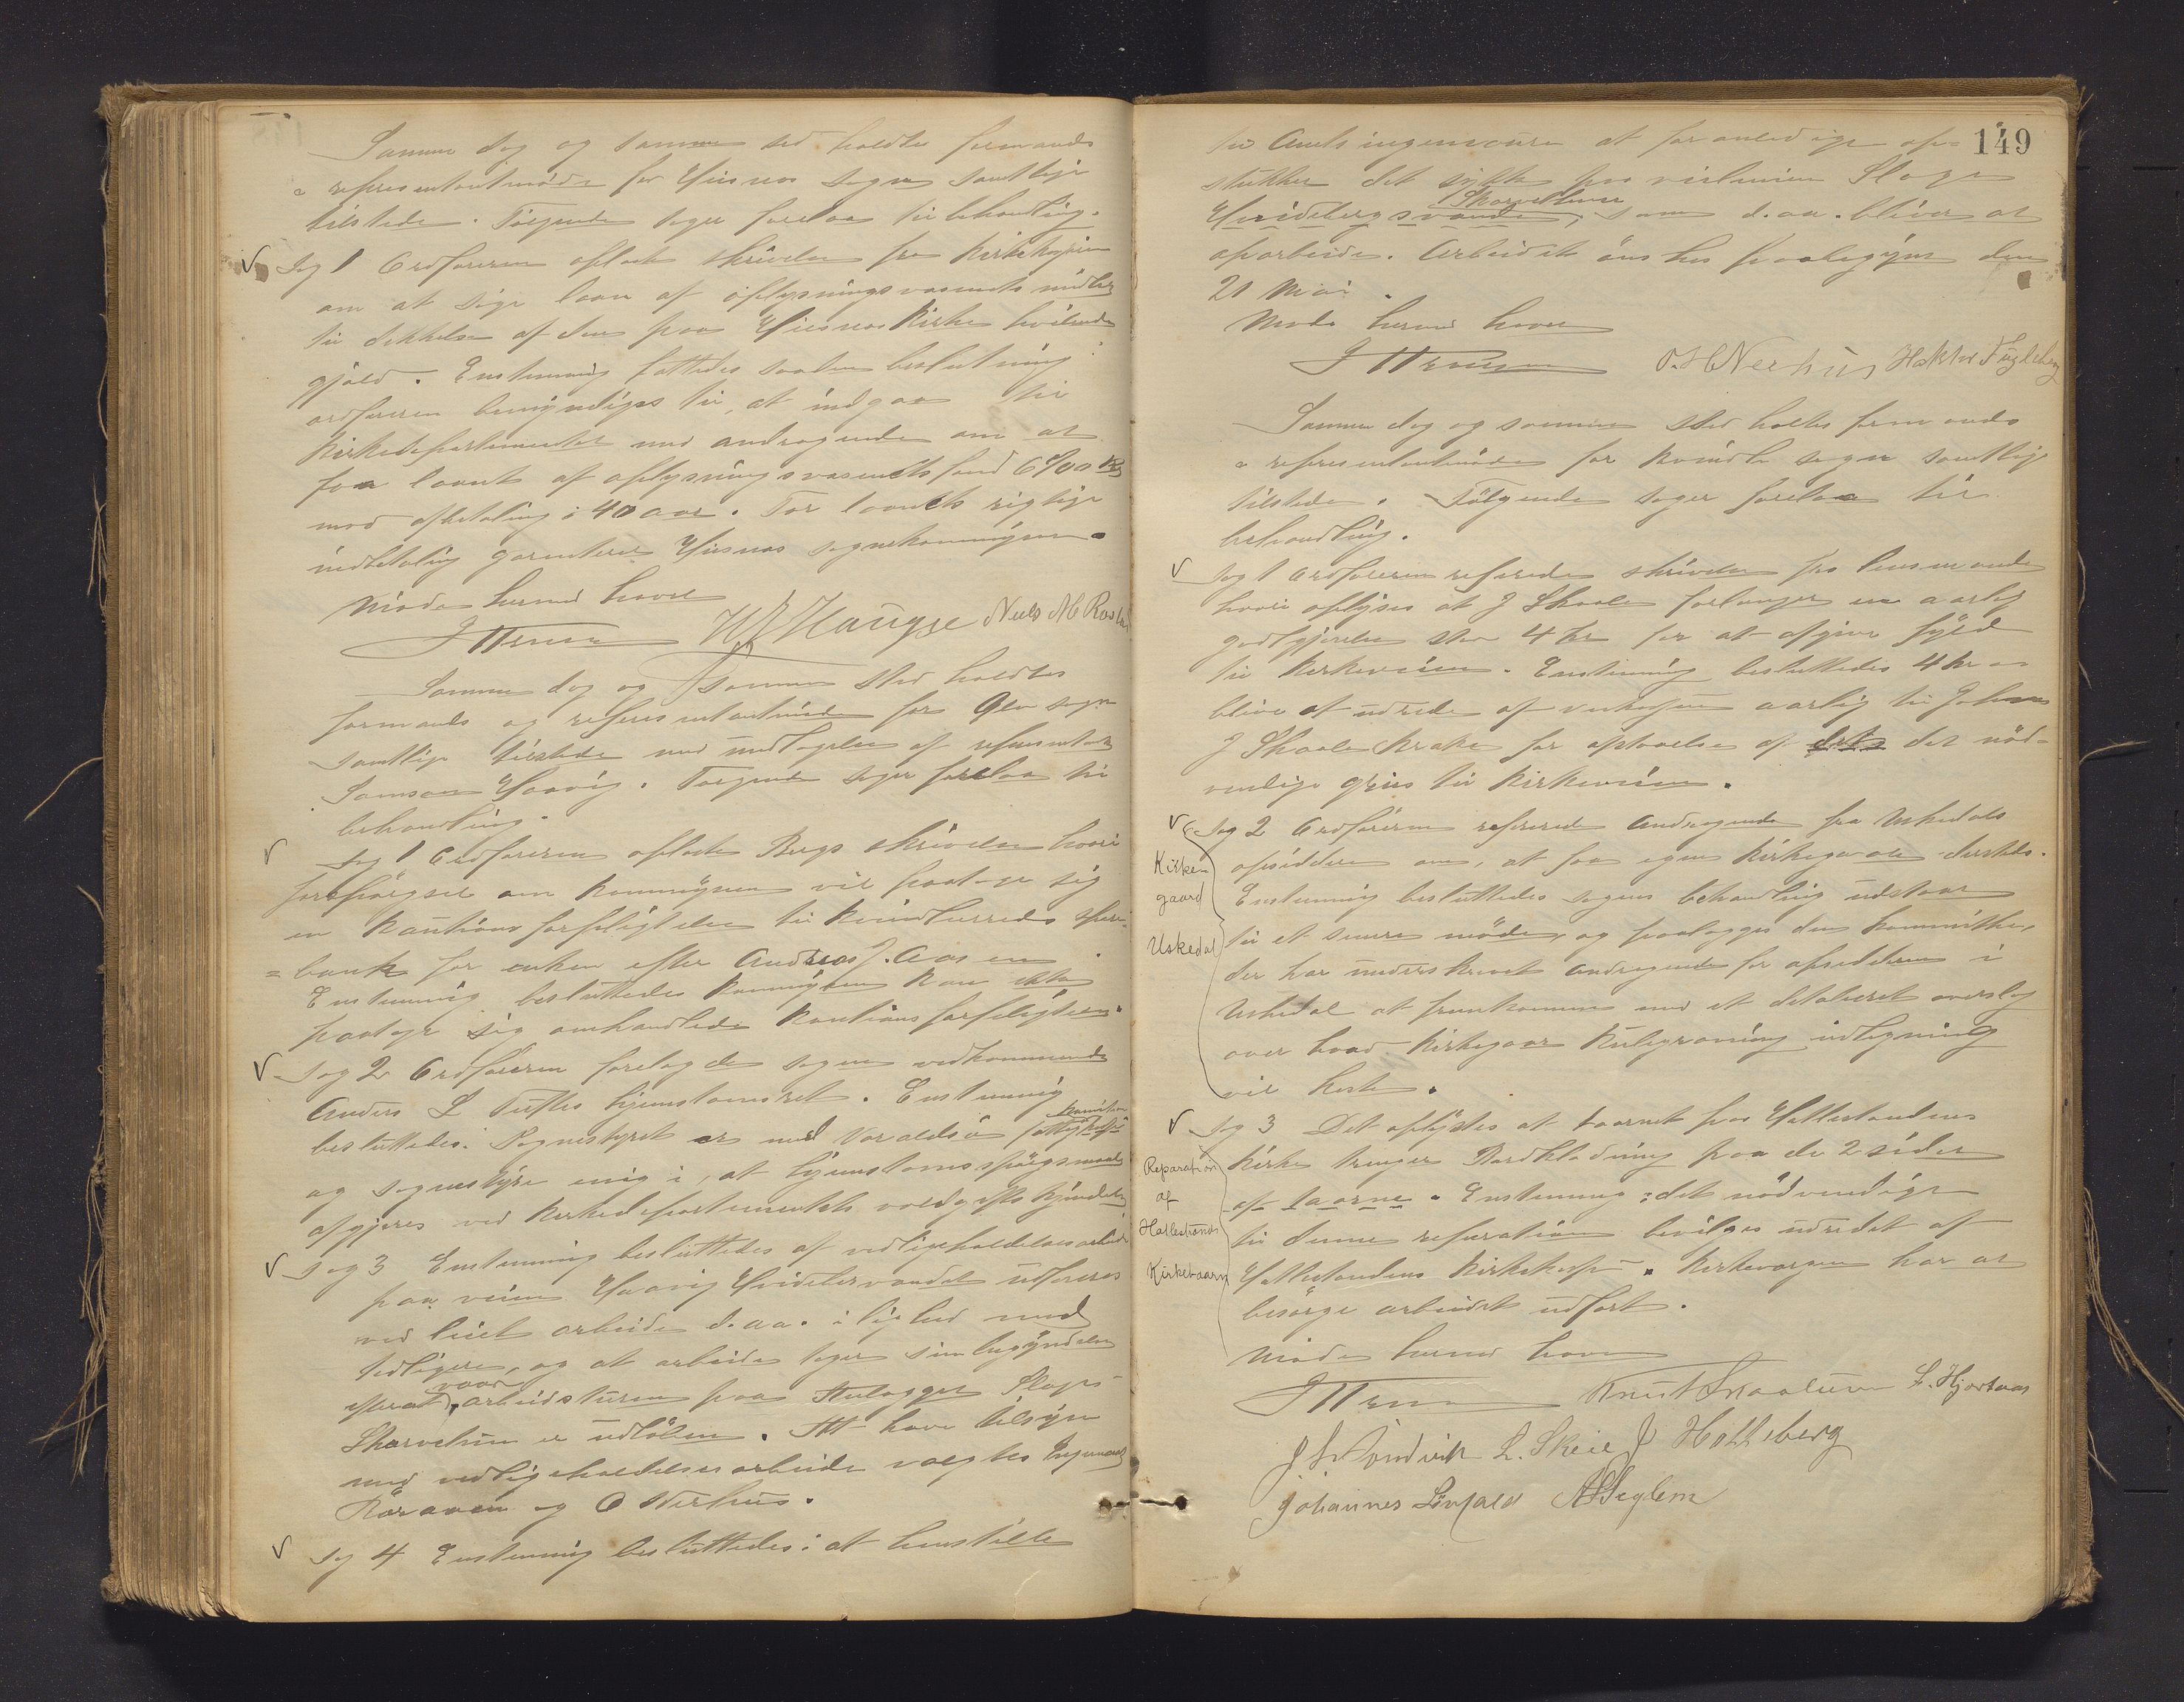 Samme dag og samme sted holdtes formands
= representantmøde for Husnes sogn samtlige
tilstede. Følgende sager forelaa til behandling.
Sag 1 Ordføreren oplæste skrivelse fra Kirkevergen
om at søge laan af oplysningsvæsenets midler
til dekkelse af den paa Husnes Kirke hvilende
gjæld. Enstemmig fattedes saadan beslutning:
ordføreren bemyndiges til, at indgaa til
Kirkedepartementet med andragende om at
faa laant af oplysningsvæsenets fond 6400 Kr
mod afbetaling i 40 aar. For laanets rigtige
indbetaling garanterer Husnes sognekommune.
Møde hermed hævet
H J Haugse Niels M Rosl
Samme dag og samme sted holdtes
formands og representantmøde for Øln sogn
samtlige tilstede med undtagelse af representant
Samson Haavig. Følgende sager forelaa til
behandling.
Sag 1 Ordføreren oplæste Bergs skrivelse hvori
forespørgsel om Kommunen vil paatage sig
en Kautions forpligtelse til Kvindherreds spare-
= bank for enken efter Andreas J. Aasen
Enstemmig besluttedes Kommunen kan ikke
paatage sig omhandlede Kautions forpligtelse.
Sag 2 Ordføreren forelagde sagen vedkommende
Anders L Tuftes hjemstavnsret. Enstemmig
besluttedes: Sognestyret er med Varaldsø fattig
og sognestyre enig i, at hjemstavnsspørgsmaalet
afgjøres ved Kirkedepartementets voldgiftskjendelse
Sag 3 Enstemmig besluttedes at vedligeholdelsesarbeide
paa veien Haavig Hvidebervandet udføres
ved leiet arbeide d. aa. i lighed med
tidligere, og at arbeidet tager sin begyndelse
efterat vaar arbeidsturen paa anlægget Flage
Skarvetun er udløben. At have tilsyn
med vedligeholdelsesarbeide valgtes Ingemand
Røraaen og O Nerhus.
Sag 4 Enstemmig besluttedes: at henstille
149
til Amtsingeniøren at foranledige op-
stukket det stykke paa veilinien Flage
Skarvetun
Hvidebergsvandet, som d. aa. bliver at
oparbeide. Arbeidet ønskes paabegynt den
21 Mai.
Møde hermed hævet
O. H Nerhus Haktor Fugleberg
Samme dag og samme sted holtes formands
= representantmøde for Kvindh. sogn samtlige
tilstede. Følgende sager forelaa til
behandling.
Sag 1 Ordføreren refererede skrivelse fra lensmanden
hvori oplyses at J Skaale forlanger en aarlig
godtgjørelse stor 4 kr for at afgive fyld
til Kirkeveien. Enstemmig besluttedes 4 kr at
blive at udrede af veikassen aarlig til Johannes
J Skaale Krake for optagelse af det nød-
vendige grus til Kirkeveien.
Sag 2 Ordføreren refererede Andragende fra Uskedals
opsiddere om, at faa egen Kirkegaard dersteds.
Enstemmig besluttedes sagens behandling udstaar
til et senere møde, og paalægges den Kommitte,
der har underskrevet andragende for opsidderne i
Uskedal at fremkomme med et detaljeret overslag
over hvad Kirkegaar Kulegravning indhegning
vil koste.
Kirke-
gaard
Uskedal
Sag 3 Det oplystes at taarnet paa Hatlestrandens
Kirke trenger Bordklædning paa de 2 sider
af taarne. Enstemmig: det nødvendige
til denne reperation bevilges udredet af
Hatlestrandens Kirkekasse. Kirkevergen har at
besørge arbeidet udført.
Reparation
af
Hatlestrands
Kirketaarn
Møde hermed hævet
Knut Snaaluen L. Hjortaas
L. Skeie J Holleberg
Johannes Løvfald A Seglem